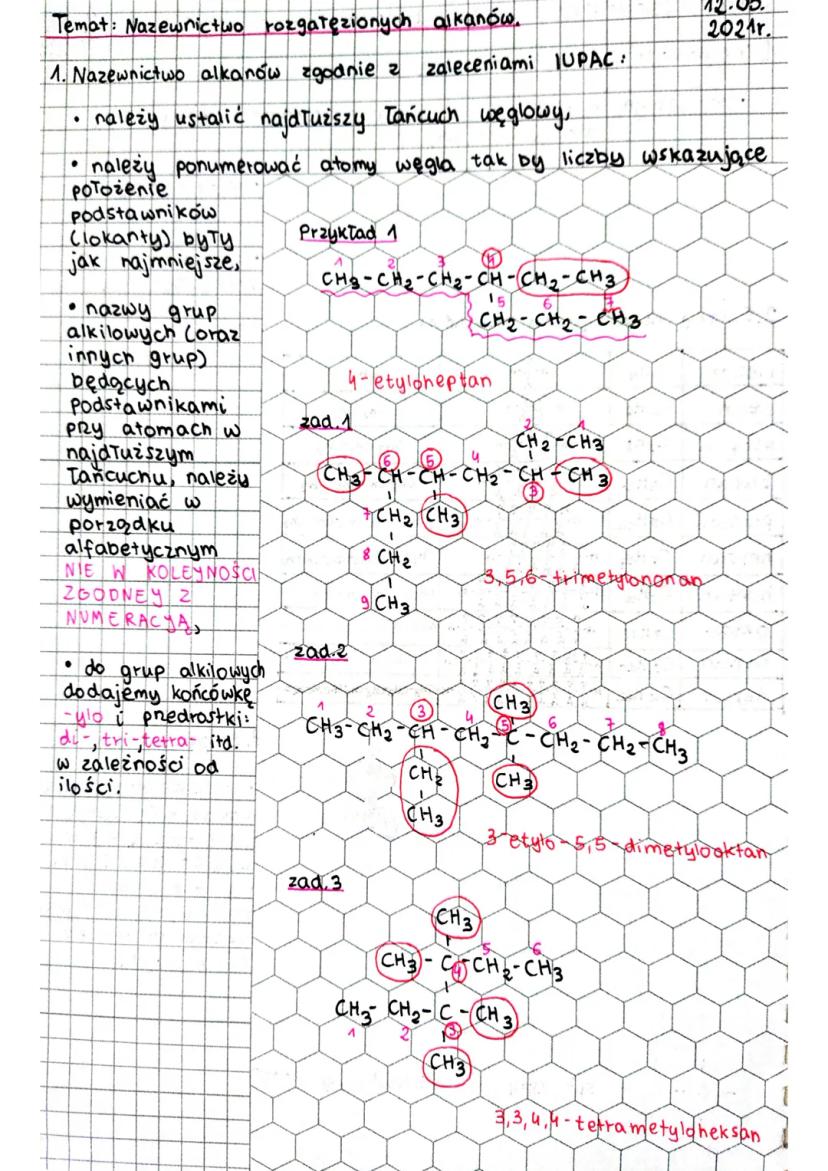 12.05.
Temat: Nazewnictwo rozgałęzionych alkanów. 2021r.
1. Nazewnictwo alkanów zgodnie z zaleceniami IUPAC:
• należy ustalić najdłuższy łańcuch węglowy,
• należy ponumerować atomy węgla tak by liczby wskazujące
położenie
podstawników
(lokanty) były
jak najmniejsze,
• nazwy grup
alkilowych (oraz
innych grup)
będących
podstawnikami
przy atomach w
najdłuższym
łańcuchu, należy
wymieniać w
porządku
alfabetycznym
NIE W KOLEJNOŚCI
ZGODNEJ Z
NUMERACJĄ,
• do grup alkilowych
dodajemy końcówkę
-ylo i przedrostki:
di-, tri-, tetra- itd.
w zależności od
ilości.
Przykład 1
1 2 3 4
CH3-CH2-CH2-CH-CH2-CH3
5 6 7
CH2-CH2-CH3
4-etyloheptan
zad.1
2 1
CH2-CH3
6 5 4
CH3-CH-CH-CH2-CH-CH3
3
7 CH2 CH3
8 CH2
3,5,6-trimetylononan
9 CH3
zad.2
CH3
1 2 3 4 5 6 7 8
CH3-CH2-CH-CH2-C-CH2-CH2-CH3
CH2 CH3
CH3
3-etylo-5,5-dimetylooktan
zad.3
CH3
5 6
CH3-C-CH2-CH3
4
CH3-CH2-C-CH3
1 2 3
CH3
3,3,4,4-tetrametyloheksan